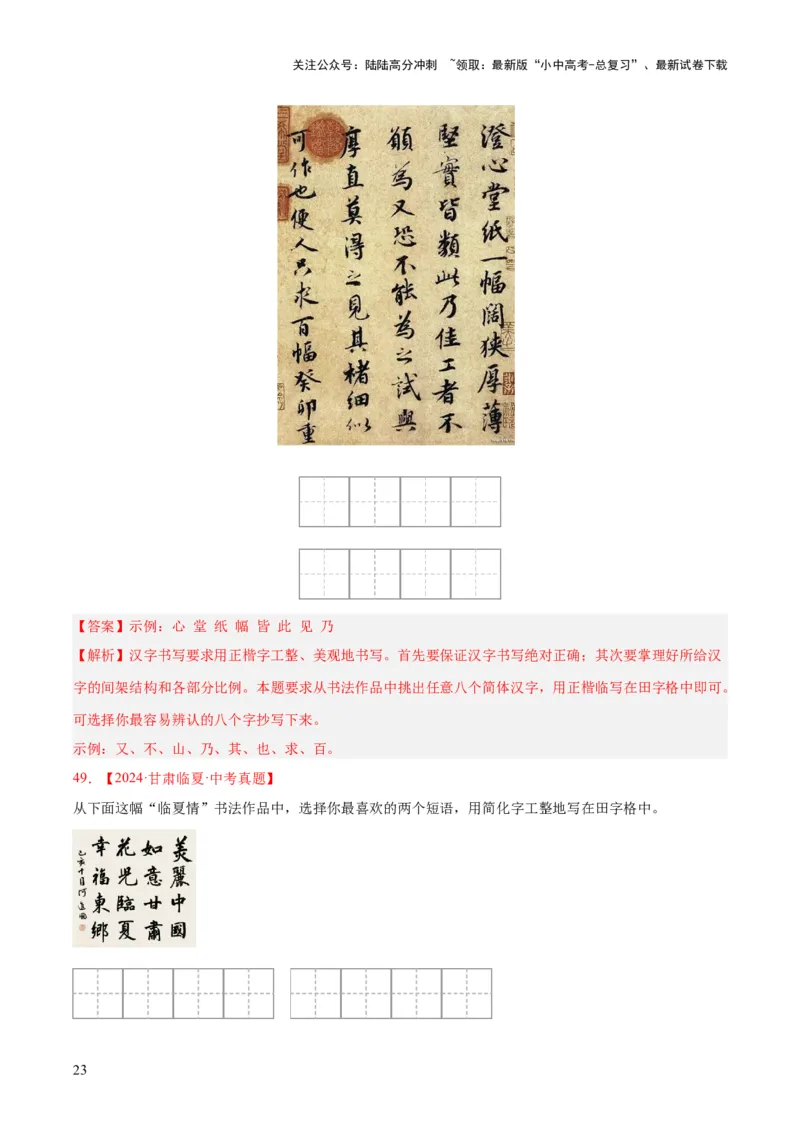 关注公众号：陆陆高分冲刺 ~领取：最新版“小中高考-总复习”、最新试卷下载
澄心堂紙一幅闊狹厚薄
堅實皆類此乃佳工者不
願為又恐不能為之試與
厚直莫得之見其楮細似
可作也便人只求百幅癸卯重
【答案】示例：心 堂 纸 幅 皆 此 见 乃
【解析】汉字书写要求用正楷字工整、美观地书写。首先要保证汉字书写绝对正确；其次要掌理好所给汉
字的间架结构和各部分比例。本题要求从书法作品中挑出任意八个简体汉字，用正楷临写在田字格中即可。
可选择你最容易辨认的八个字抄写下来。
示例：又、不、山、乃、其、也、求、百。
49．【2024·甘肃临夏·中考真题】
从下面这幅“临夏情”书法作品中，选择你最喜欢的两个短语，用简化字工整地写在田字格中。
美麗中國
如意甘肅
花兒臨夏
幸福東鄉
己亥十月
23